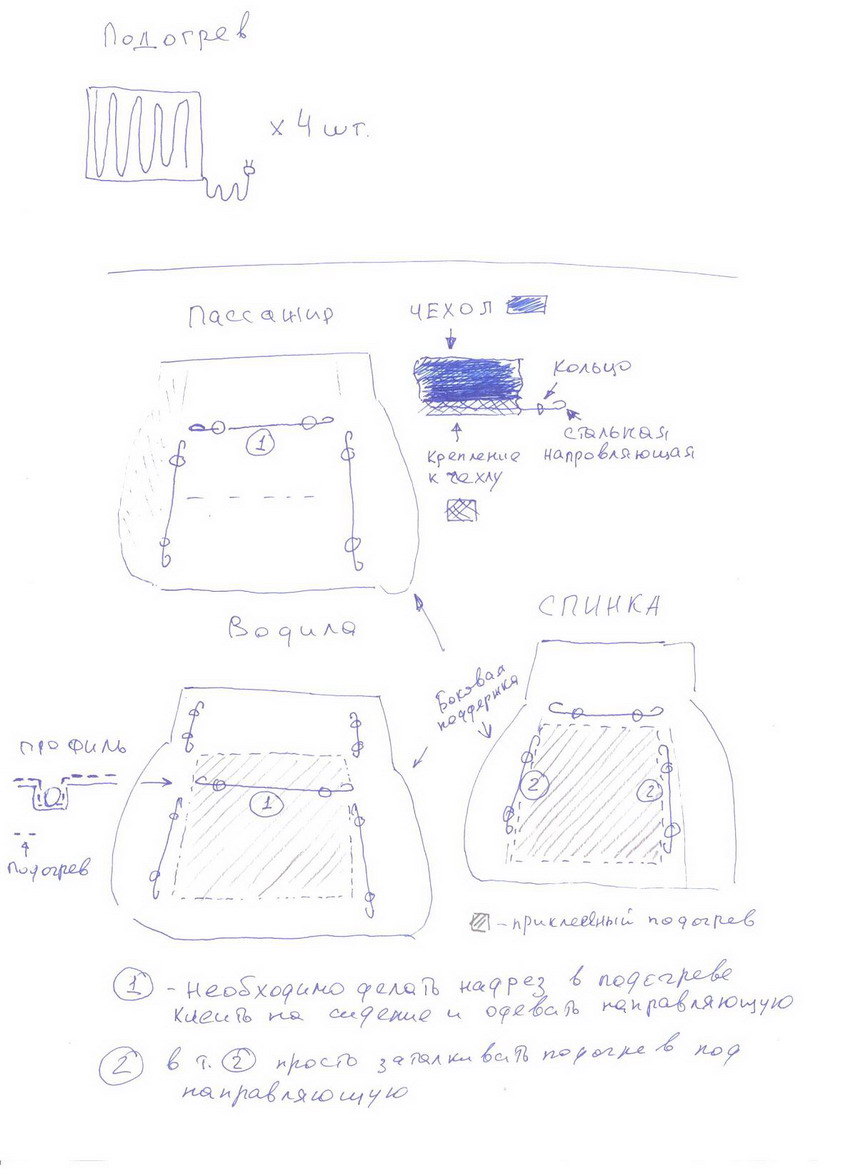 Подогрев
x 4 шт.
Пассажир
ЧЕХОЛ
Кольцо
стальная
напровляющая
крепление
к чехлу
1
Водила
СПИНКА
Боковая
поддержка
ПРОФИЛЬ
Подогрев
1
2
2
- приклеенный подогрев
1 - Необходимо делать надрез в подогреве
клеить на сидение и одевать направляющую
2 в т. 2 просто заталкивать подогрев под
направляющую